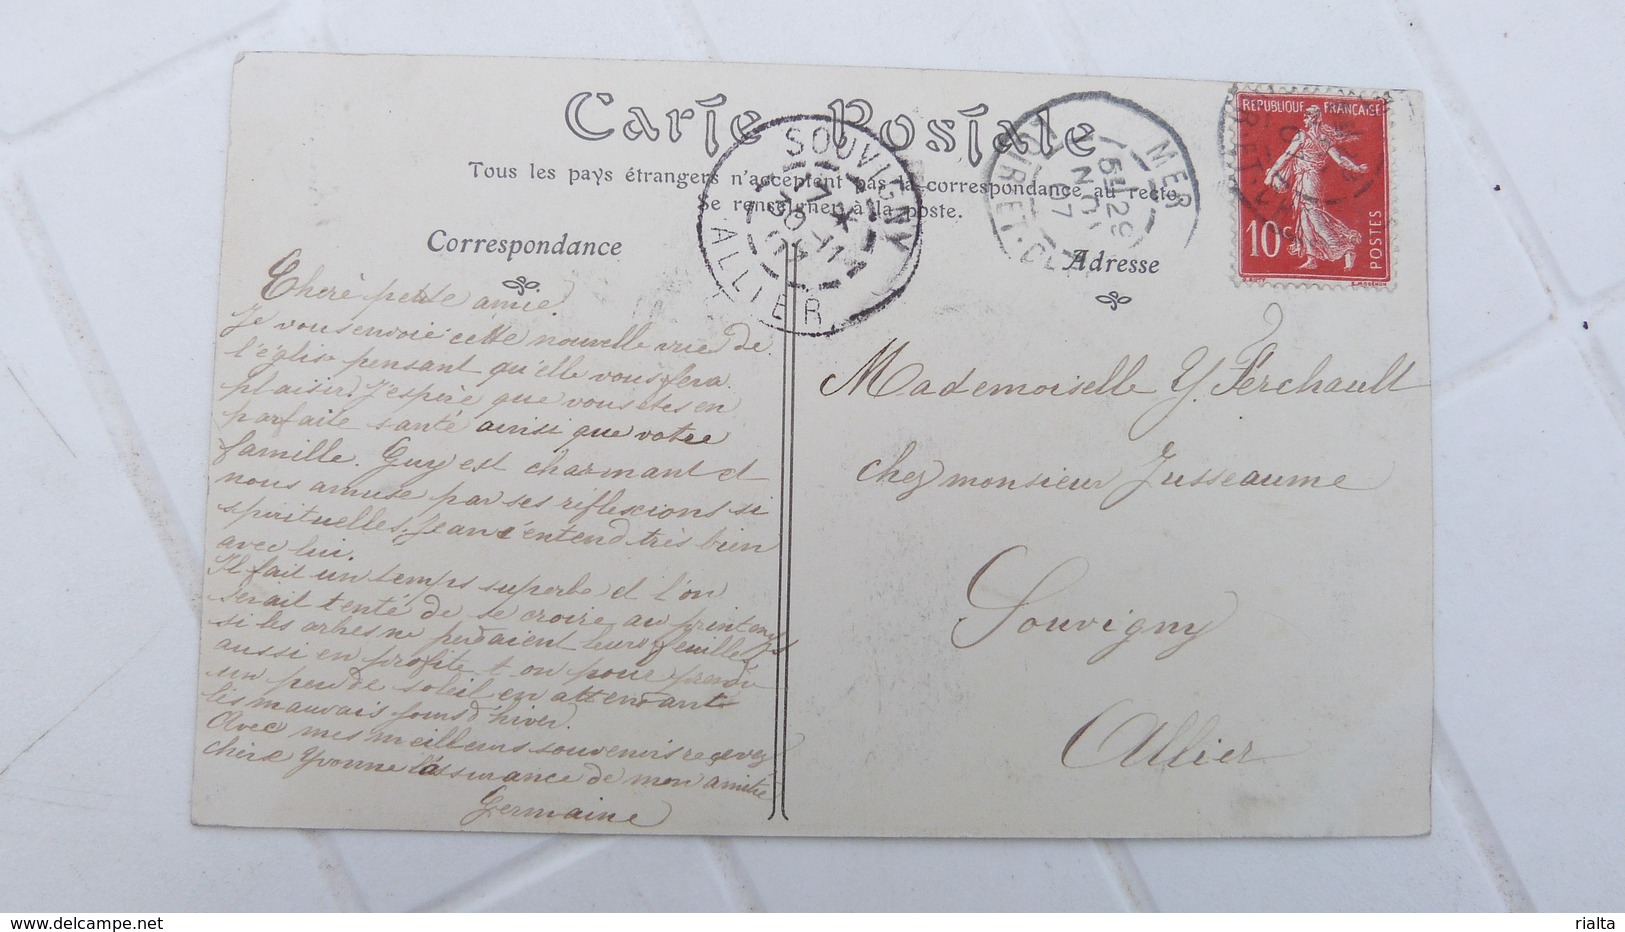 Carte Postale
Tous les pays étrangers n'acceptent pas la correspondance au recto
Se renseigner à la poste.
Correspondance
Adresse
SOUVIGNY
ALLIER
MER
LOIR-ET-CHER
29
07
REPUBLIQUE FRANÇAISE
10
POSTES
Cherè petite amie.
Je vous envoie cette nouvelle vue de
l'église pensant qu'elle vous fera
plaisir. J'espère que vous etes en
parfaite santé ainsi que votre
famille. Guy est charmant et
nous amuse par ses reflexions si
spirituelles. Jean s'entend très bien
avec lui.
Il fait un temps superbe et l'on
serait tenté de se croire au printemps
si les arbres ne perdaient leurs feuilles
aussi en profite t on pour prendre
un peu de soleil en attendant
les mauvais jours d'hiver.
Avec mes meilleurs souvenirs recevez
chère Yvonne l'assurance de mon amitié
Germaine
Mademoiselle Y. Férchault
chez monsieur Jusseaume
Souvigny
Allier
rialta